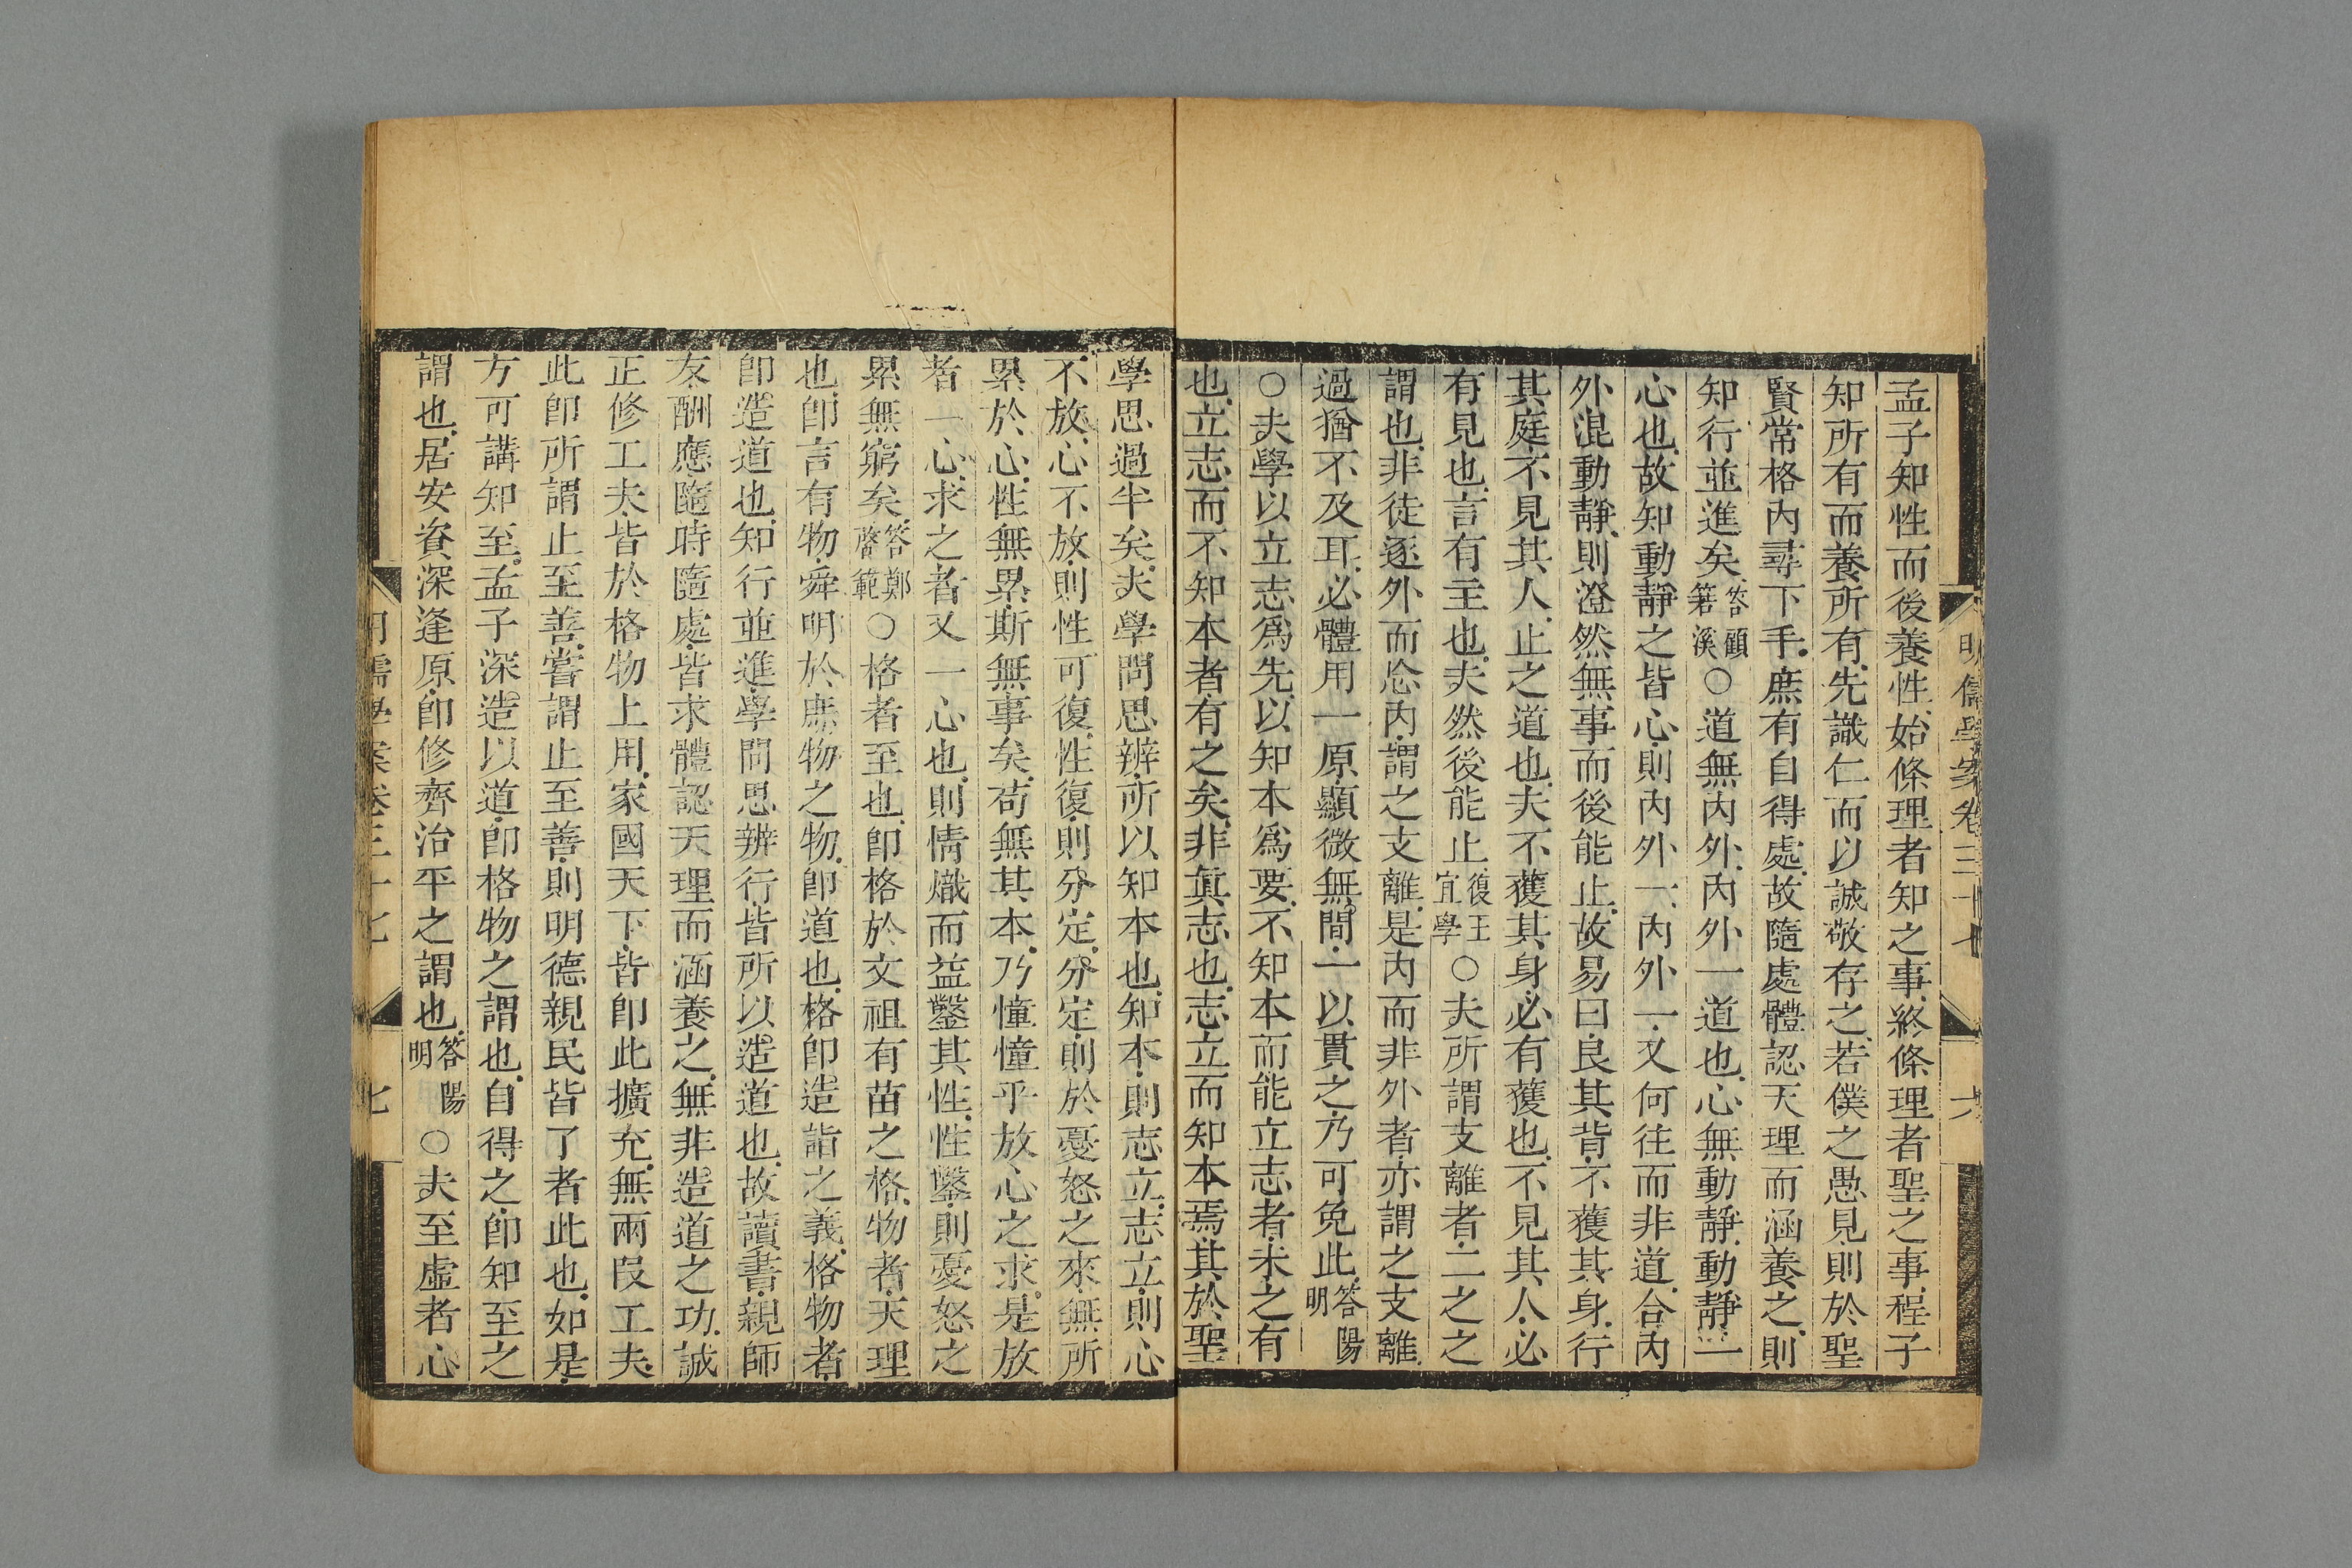 明儒學案卷三十七
六
孟子知性而後養性始條理者知之事終條理者聖之事程子
知所有而養所有先識仁而以誠敬存之若僕之愚見則於聖
賢常格內尋下手庶有自得處故隨處體認天理而涵養之則
知行並進矣答顧箬溪○道無內外內外一道也心無動靜動靜一
心也故知動靜之皆心則內外一內外一又何往而非道合內
外混動靜則澄然無事而後能止故易曰艮其背不獲其身行
其庭不見其人止之道也夫不獲其身必有獲也不見其人必
有見也言有主也夫然後能止復王宜學○夫所謂支離者二之之
謂也非徒逐外而忘內謂之支離是內而非外者亦謂之支離
過猶不及耳必體用一原顯微無間一以貫之乃可免此答陽明
○夫學以立志爲先以知本爲要不知本而能立志者未之有
也立志而不知本者有之矣非眞志也志立而知本焉其於聖
學思過半矣夫學問思辨所以知本也知本則志立志立則心
不放心不放則性可復性復則分定分定則於憂怒之來無所
累於心性無累斯無事矣苟無其本乃憧憧乎放心之求是放
者一心求之者又一心也則情熾而益鑿其性性鑿則憂怒之
累無窮矣答鄭啓範○格者至也卽格於文祖有苗之格物者天理
也卽言有物舜明於庶物之物卽道也格卽造詣之義格物者
卽造道也知行並進學問思辨行皆所以造道也故讀書親師
友酬應隨時隨處皆求體認天理而涵養之無非造道之功誠
正修工夫皆於格物上用家國天下皆卽此擴充無兩段工夫
此卽所謂止至善嘗謂止至善則明德親民皆了者此也如是
方可講知至孟子深造以道卽格物之謂也自得之卽知至之
謂也居安資深逢原卽修齊治平之謂也答陽明○夫至虛者心
明儒學案卷三十七
七